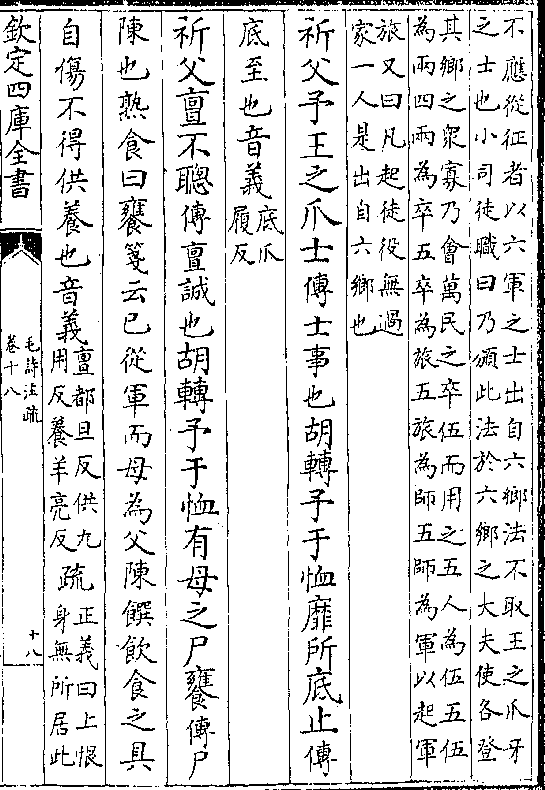 不應從征者以六軍之士出自六鄉法不取王之爪牙
之士也小司徒職曰乃頒此法於六鄉之大夫使各登
其鄉之眾寡乃會萬民之卒伍而用之五人為伍五伍
為兩四兩為卒五卒為旅五旅為師五師為軍以起軍
旅又曰凡起徒役無過
家一人是出自六鄉也
祈父予王之爪士傳士事也胡轉予于恤靡所底止傳
底至也音義底爪
履反
祈父亶不聰傳亶誠也胡轉予于恤有母之尸饔傳尸
陳也熟食曰饔箋云已從軍而母為父陳饌飲食之具
自傷不得供養也音義亶都旦反供九
用反養羊亮反
疏正義曰上恨
身無所居此
欽定四庫全書
毛詩注疏
卷十八
十八